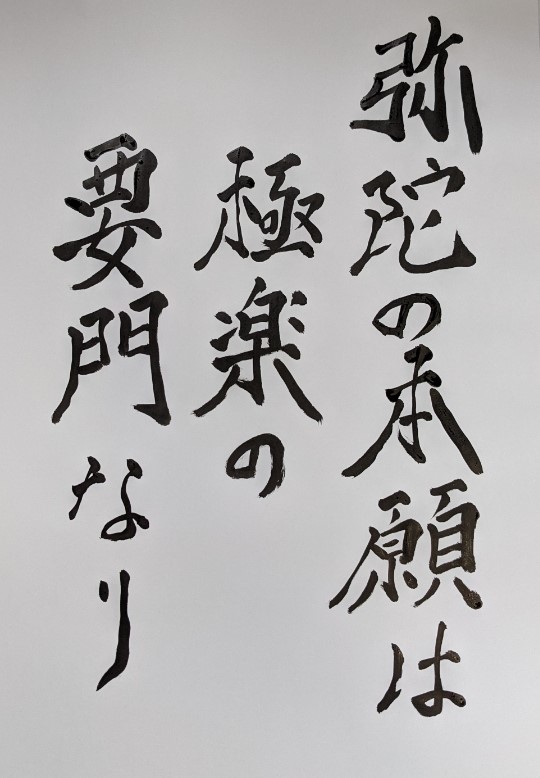 弥陀の本願は
極楽の
要門なり